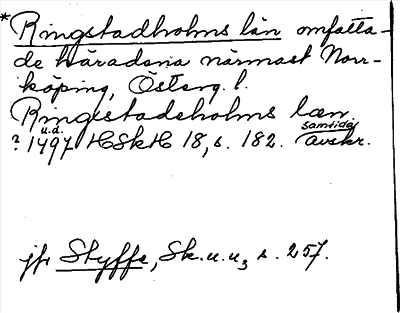 * Ringstadholms län omfatta-
de häradena närmast Norr-
köping, Österg. l.
Ringestadeholms læn
? u.d. 1497 HSkH 18, s. 182. samtida avskr.
jfr Styffe, Sk.u.u, s. 257.